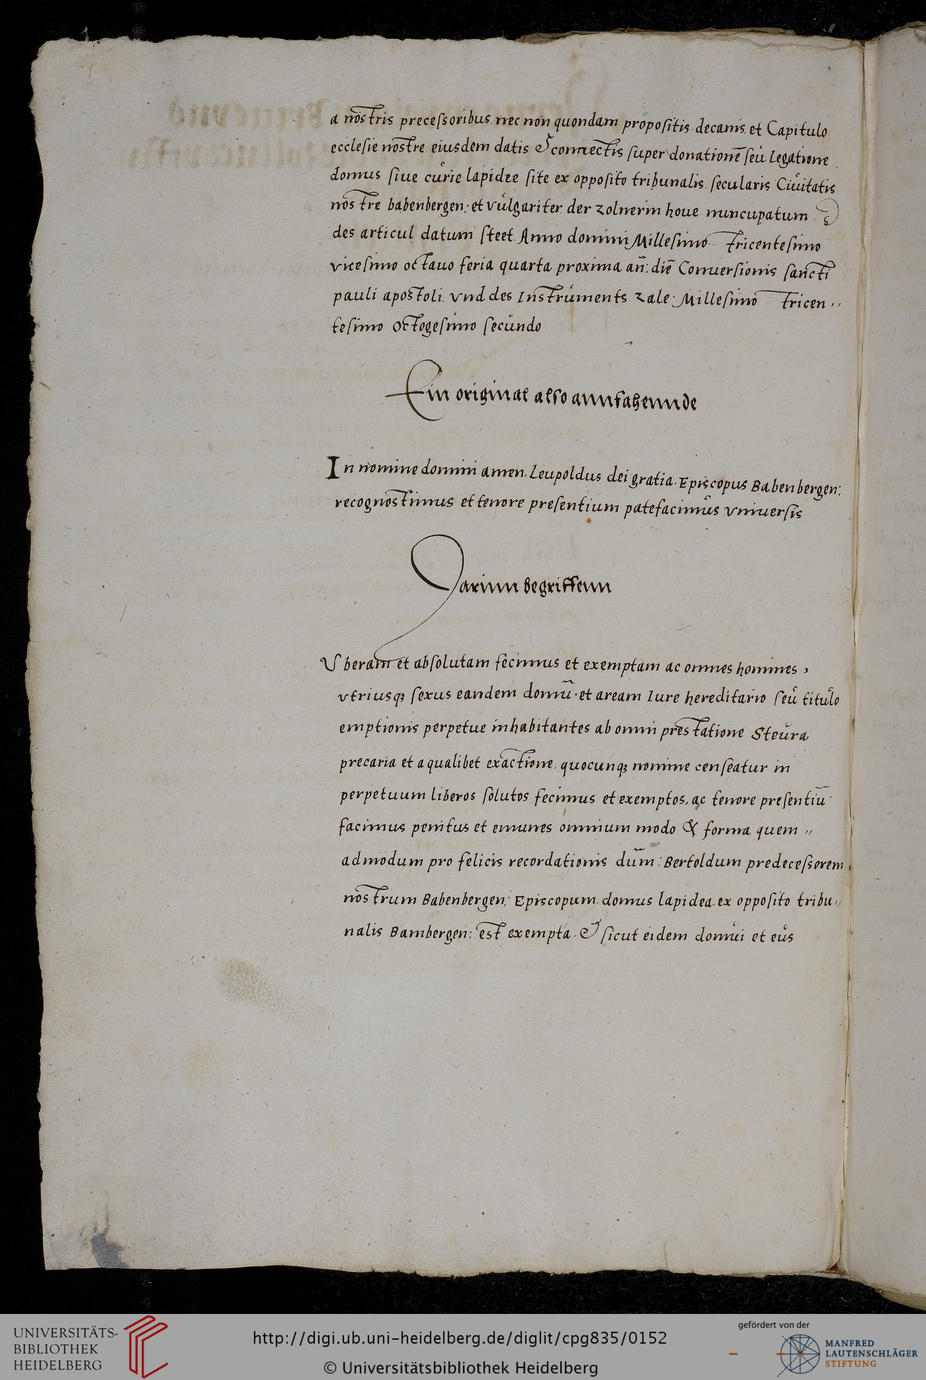 a nostris precessoribus. nec non quondam propositis decanis. et Capitulo
ecclesie nostre eiusdem datis & connectis super donatione seu legatione
domus siue curie lapidee site ex opposito tribunalis. secularis Ciuitatis
nostre babenbergen: et vulgariter der zolnerin houe nuncupatum
des articul datum steet Anno domini Millesimo tricentesimo
vicesimo octauo feria quarta proxima an: die Conuersionis sancti
pauli apostoli. vnd des Instruments zale: Millesimo tricen„
tesimo octogesimo secundo
Ein original also annfahennde
In nomine domini amen. Leupoldus dei gratia. Episcopus Babenbergen:
recognoscimus et tenore presentium patefacimus vniuersis
Darinn begriffenn
Vberam et absolutam fecimus et exemptam ac omnes homines,
vtriusq; sexus eandem domu et aream Iure hereditario seu titulo
emptionis perpetue inhabitantes ab omni prestatione Steura
precaria et a qualibet exactione. quocunq; nomine censeatur in
perpetuum liberos solutos fecimus et exemptos. ac tenore presentiu
facimus penitus et emunes omnium modo & forma quem„
admodum pro felicis recordationis dum: Bertoldum predecessorem
nostrum Babenbergen: Episcopum domus lapidea ex opposito tribu„
nalis Bambergen: est exempta. & sicut eidem domui et eus
UNIVERSITÄTS-
BIBLIOTHEK
HEIDELBERG
http://digi.ub.uni-heidelberg.de/diglit/cpg835/0152
© Universitätsbibliothek Heidelberg
gefördert von der
MANFRED
LAUTENSCHLÄGER
STIFTUNG